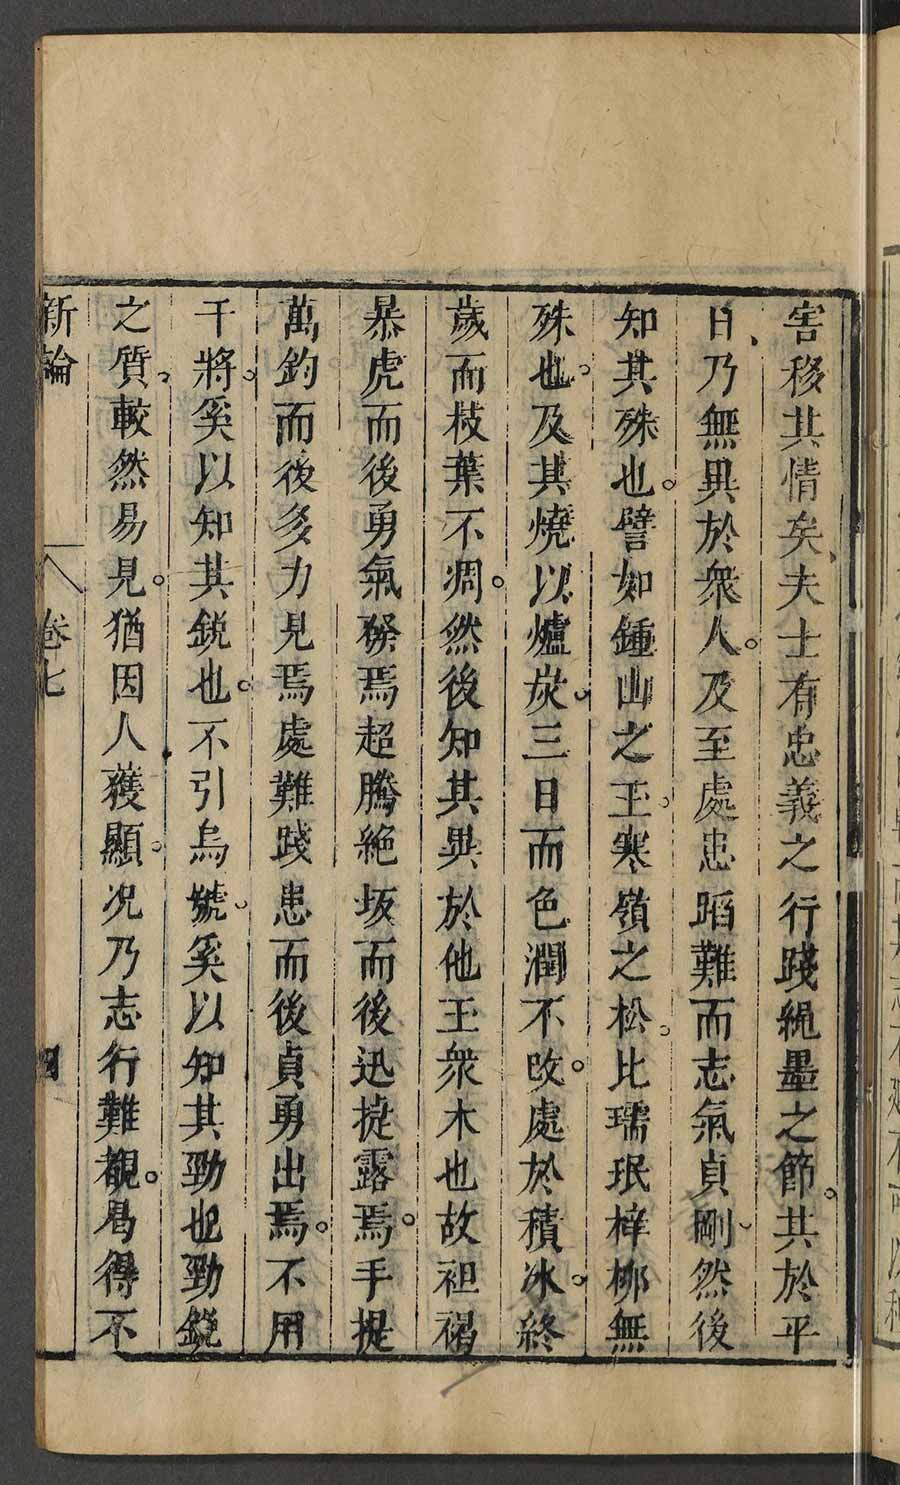 害移其情矣夫士有忠義之行踐繩墨之節。其於平
日、乃無異於衆人。及至處患蹈難而志氣貞剛、然後
知其殊也。譬如鍾山之玉。寒嶺之松。比瑌珉梓柳無
殊也。及其燒以爐炭、三日而色潤不改。處於積冰。終
歲而枝葉不凋。然後知其異於他玉衆木也故袒裼
暴虎而後勇氣發焉超騰絶坂而後迅捷露焉。手提
萬鈞而後多力見焉處難踐患而後貞勇出焉。不用
干將。奚以知其鋭也。不引烏號。奚以知其勁也勁鋭
之質、較然易見。猶因人獲顯。况乃志行難覩。曷得不
新論 卷七 四